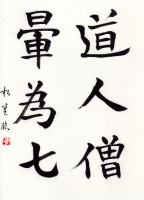 道人僧
暈為七